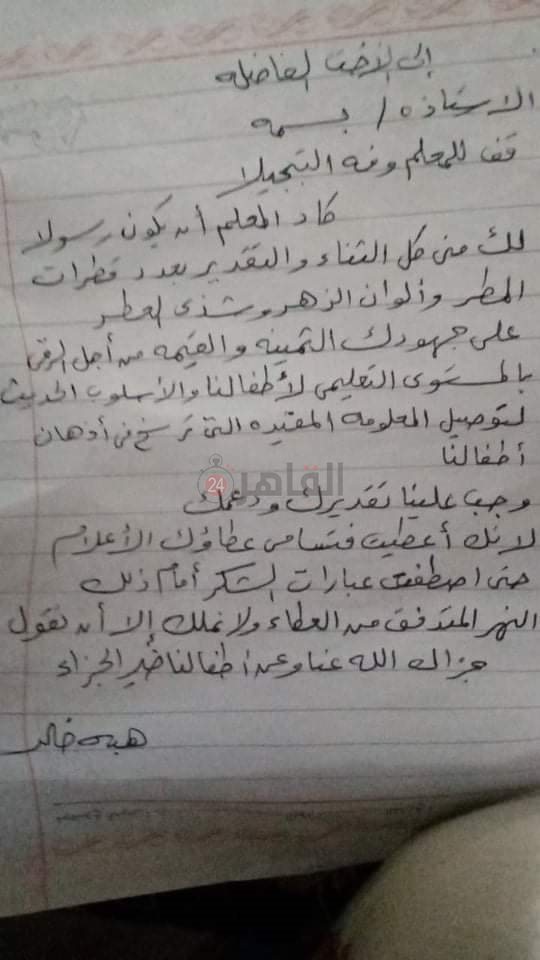 إلى الأخت الفاضله
الاستاذه / بسمه
قف للمعلم وفه التبجيلا
كاد المعلم أن يكون رسولا
لك منى كل الثناء والتقدير بعدد قطرات
المطر وألوان الزهر وشذى العطر
على جهودك الثمينه والقيمه من أجل الرقى
بالمستوى التعليمى لأطفالنا والأسلوب الحديث
لتوصيل المعلومه المفيده التى ترسخ فى أذهان
أطفالنا
القاهرة 24
وجب علينا تقديرك ودعمك
لانك أعطيت فتسامى عطاؤك الأعلام
حتى اصطفت عبارات الشكر أمام ذلك
النهر المتدفق من العطاء ولا نملك إلا أن نقول
جزاك الله عنا وعن أطفالنا خير الجزاء
هبه خالد